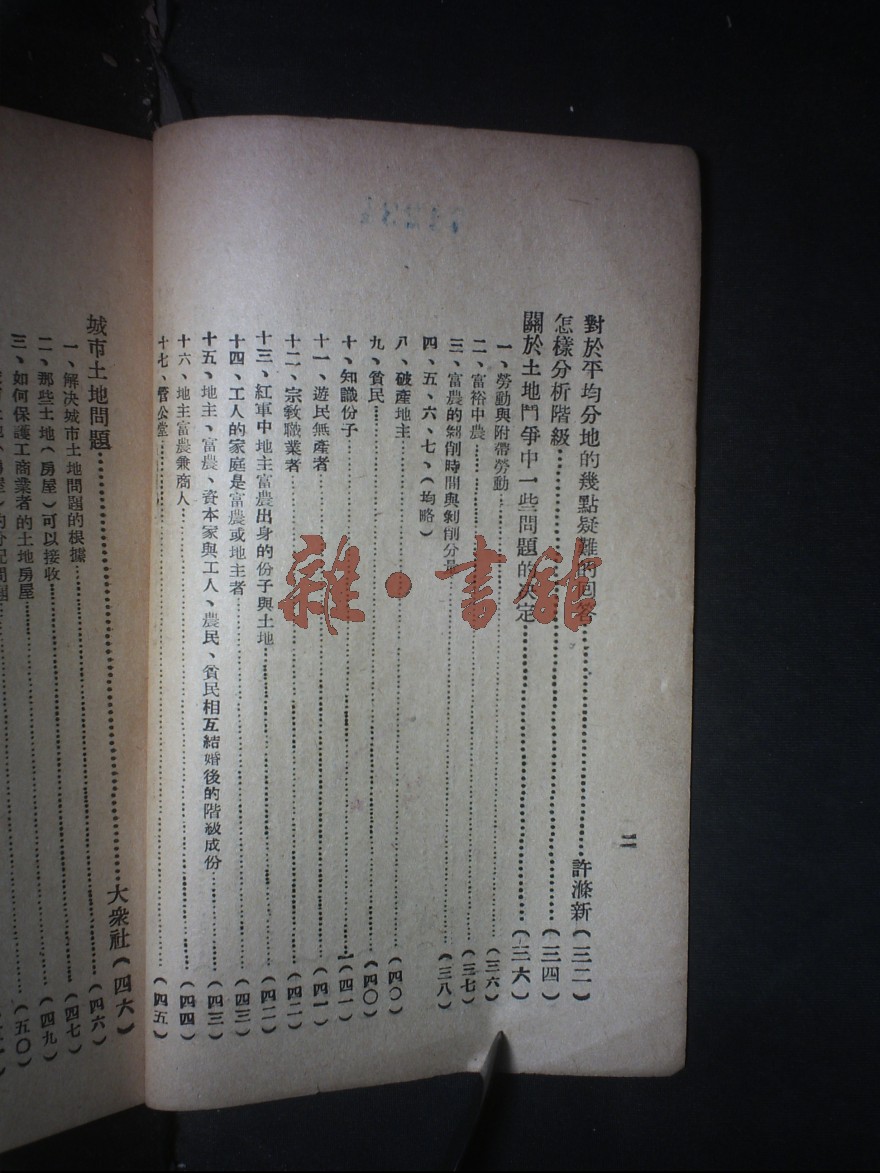 二
對於平均分地的幾點疑難的回答……許滌新(三二)
怎樣分析階級……(三四)
關於土地鬥爭中一些問題的决定……(三六)
一、勞動與附帶勞動……(三六)
二、富裕中農……(三七)
三、富農的剝削時間與剝削分量……(三八)
四、五、六、七、(均略)
八、破產地主……(四〇)
九、貧民……(四〇)
十、知識份子……(四一)
十一、遊民無產者……(四一)
十二、宗敎職業者……(四二)
十三、紅軍中地主富農出身的份子與土地……(四二)
十四、工人的家庭是富農或地主者……(四三)
十五、地主、富農、資本家與工人、農民、貧民相互結婚後的階級成份……(四三)
十六、地主富農兼商人……(四四)
十七、管公堂……(四五)
城市土地問題……大衆社(四六)
一、解决城市土地問題的根據……(四六)
二、那些土地(房屋)可以接收……(四七)
三、如何保護工商業者的土地房屋……(四九)
雜·書館